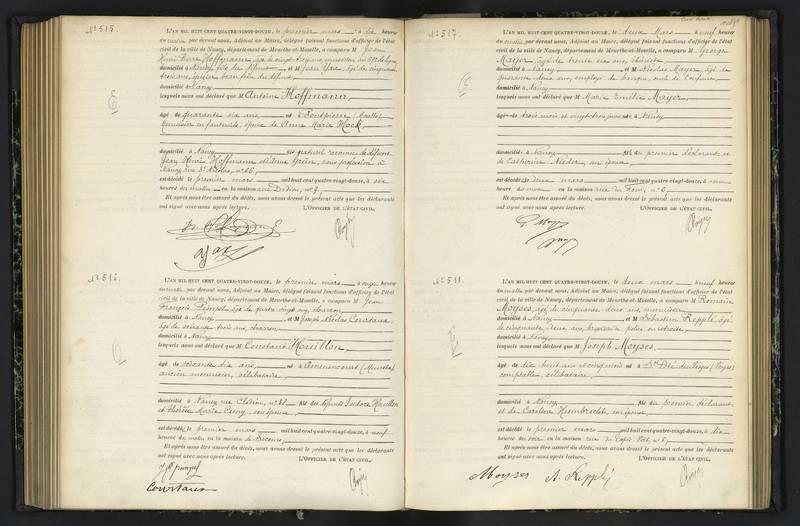 N° 515.
L'AN MIL HUIT CENT QUATRE-VINGT-DOUZE, le premier mars à dix heures
du matin, par devant nous, Adjoint au Maire, délégué faisant fonctions d'officier de l'état
civil de la ville de Nancy, département de Meurthe-et-Moselle, a comparu M Jean
domicilié à Nancy, fils du défunt et M Jean Yax, âgé de cinquante
trois ans, épicier,
domicilié à Nancy
lesquels nous ont déclaré que M Antoine Hoffmann,
âgé de quarante six ans, né à Pontpierre (Moselle)
époux de Anne Marie Hock,
domicilié à Nancy
Jean Henri Hoffmann
Nancy, rue St Nicolas,
est décédé le premier mars mil huit cent quatre-vingt-douze, à six
heures du matin en la maison rue Didion, n° 9,
Et après nous être assuré du décès, nous avons dressé le présent acte que les déclarants
ont signé avec nous après lecture. L'OFFICIER DE L'ÉTAT CIVIL.
Yax
N° 516.
L'AN MIL HUIT CENT QUATRE-VINGT-DOUZE, le premier mars à onze heures
du matin, par devant nous, Adjoint au Maire, délégué faisant fonctions d'officier de l'état
civil de la ville de Nancy, département de Meurthe-et-Moselle, a comparu M Jean
François
domicilié à Nancy et M Joseph Nicolas
âgé de soixante trois ans,
domicilié à Nancy
lesquels nous ont déclaré que M Constant Houillon,
âgé de soixante dix ans, né à
ancien menuisier, célibataire,
domicilié à Nancy rue fils des défunts Isidore Houillon
et Thérèse Marie
est décédé le premier mars mil huit cent quatre-vingt-douze, à neuf
heures du matin en la maison de Secours,
Et après nous être assuré du décès, nous avons dressé le présent acte que les déclarants
ont signé avec nous après lecture. L'OFFICIER DE L'ÉTAT CIVIL.
N° 517.
L'AN MIL HUIT CENT QUATRE-VINGT-DOUZE, le deux Mars à neuf heures
du matin, par devant nous, Adjoint au Maire, délégué faisant fonctions d'officier de l'état
civil de la ville de Nancy, département de Meurthe-et-Moselle, a comparu M George
Mayer, âgé de trente six ans,
domicilié à Nancy et M Nicolas Mayer, âgé de
quarante deux ans, employé de banque, oncle de l'enfant,
domicilié à Nancy,
lesquels nous ont déclaré que M Marie Emilie Mayer,
âgée de trois mois et vingt-trois jours, née à Nancy
domicilié à Nancy fille du premier déclarant et
de Catherine Nieder, son épouse,
est décédée le deux mars mil huit cent quatre-vingt-douze, à une
heure du matin en la maison rue du Four, n° 6,
Et après nous être assuré du décès, nous avons dressé le présent acte que les déclarants
ont signé avec nous après lecture. L'OFFICIER DE L'ÉTAT CIVIL.
G. Mayer
N° 518.
L'AN MIL HUIT CENT QUATRE-VINGT-DOUZE, le deux mars à neuf heures
du matin, par devant nous, Adjoint au Maire, délégué faisant fonctions d'officier de l'état
civil de la ville de Nancy, département de Meurthe-et-Moselle, a comparu M Romain
Moyses, âgé de cinquante deux ans, menuisier
domicilié à Nancy et M Sébastien Kepplé, âgé
de cinquante deux ans, brigadier de police en retraite
domicilié à Nancy
lesquels nous ont déclaré que M Joseph Moyses,
âgé de dix huit ans et cinq mois né à St Dié des Vosges (Vosges)
comptable, célibataire,
domicilié à Nancy fils du premier déclarant
et de Caroline Humbrecht, son épouse,
est décédé le premier mars mil huit cent quatre-vingt-douze, à dix
heures du soir en la maison rue du Tapis Vert, n° 6,
Et après nous être assuré du décès, nous avons dressé le présent acte que les déclarants
ont signé avec nous après lecture. L'OFFICIER DE L'ÉTAT CIVIL.
Moyses